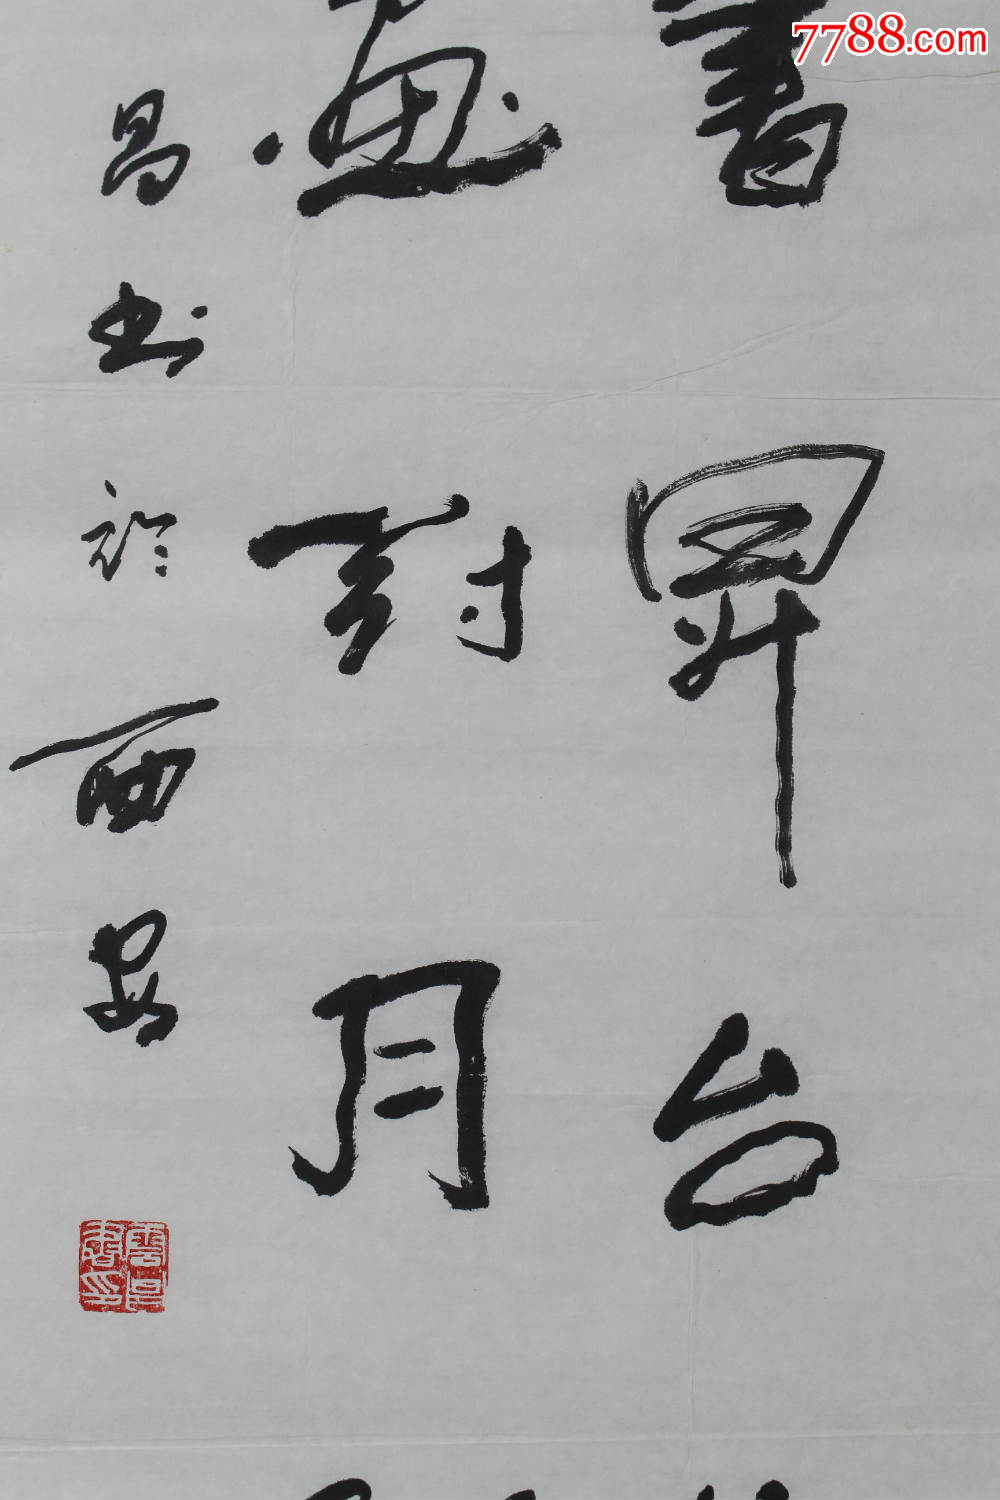 7788.com
書昇台
画對月
昌书於西安